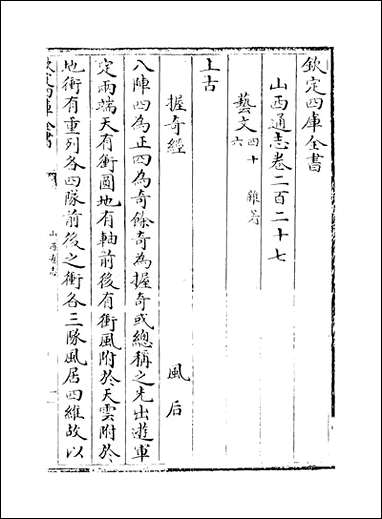 欽定四庫全書
山西通志卷二百二十七
藝文四十六 雜著
上古
握奇經 風后
八陣四為正四為奇餘奇為握奇或總稱之先出遊軍
定兩端天有衝圓地有軸前後有衝風附於天雲附於
地衝有重列各四隊前後之衝各三隊風居四維故以
欽定四庫全書
山西通志